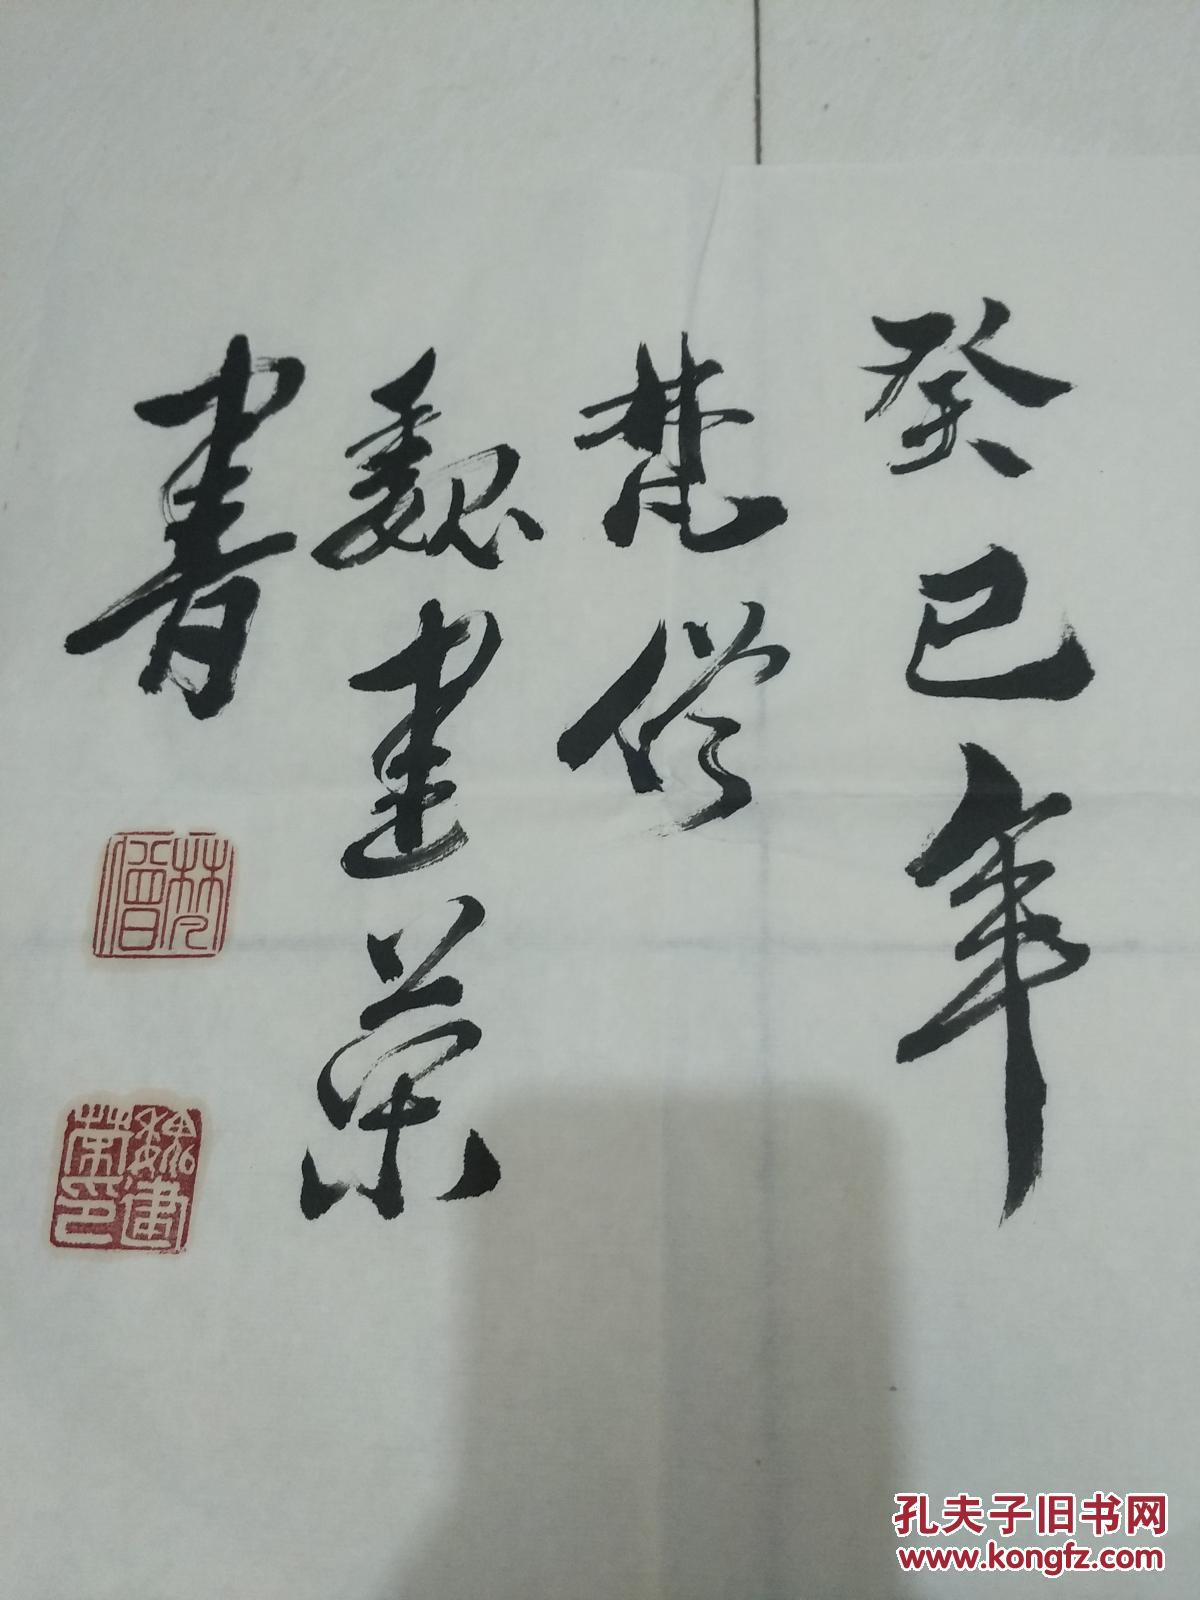 癸巳年
梵僧
魏建荣
書
梵僧
魏建荣印
孔夫子旧书网
www.kongfz.com